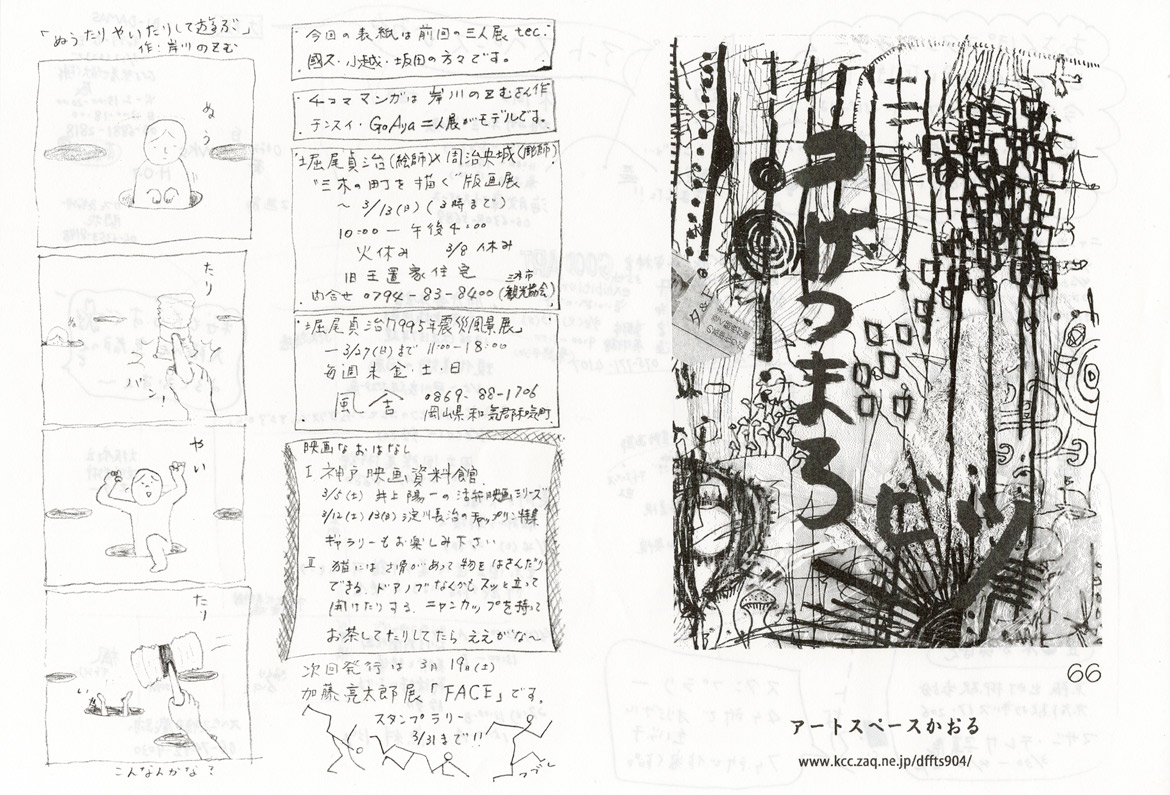 「ぬうたりやいたりして遊ぶ」
作:岸川のぞむ
ぬう
たり
スコバン!
やい
たり
こんなんかな?
今回の表紙は前回の三人展tec.
國久・小越・坂田の方々です。
4コママンガは岸川のぞむさん作
テンスイ・GoAya二人展がモデルです。
堀尾貞治(絵師)×周治央城(彫師)
"三木の町を描く"版画展
〜3/13(日)(3時まで)
10:00ー午後4:00
火休み 3/8 休み
旧玉置家住宅
内合せ 0794-83-8400(三木市観光協会)
堀尾貞治「1995年震災風景展」
ー3/27(日)まで 11:00-18:00
毎週末金・土・日
0869-88-1706
岡山県和気郡和気町
映画なおはなし
I 神戸映画資料館
3/5(土) 井上陽一の活弁映画シリーズ
3/12(土)13(日) 淀川長治のチャップリン特集
ギャラリーもお楽しみ下さい
II 猫には さ骨があって物をはさんだり
できる。ドアノブなんかもスッと立って
開けたりする。ニャンカップを持って
お茶してたりしてたらええがな〜
次回発行は 3月19日(土)
加藤亮太郎展「FACE」です。
スタンプラリー
3/31まで!!
つづし
コけつまろビツ
66
アートスペースかおる
www.kcc.zaq.ne.jp/dffts904/